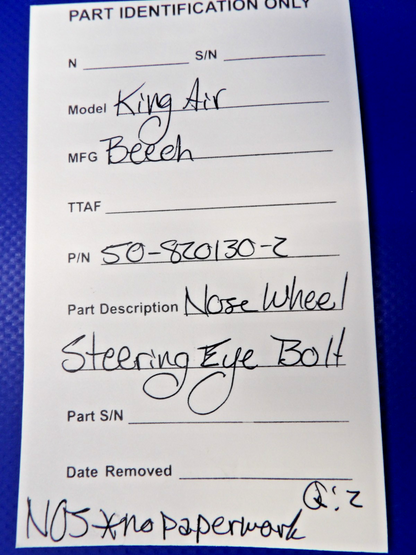 PART IDENTIFICATION ONLY
N S/N
Model King Air
MFG Beech
TTAF
P/N 50-820130-2
Part Description Nose Wheel
Steering Eye Bolt
Part S/N
Date Removed
Q: 2
NOS *no paperwork